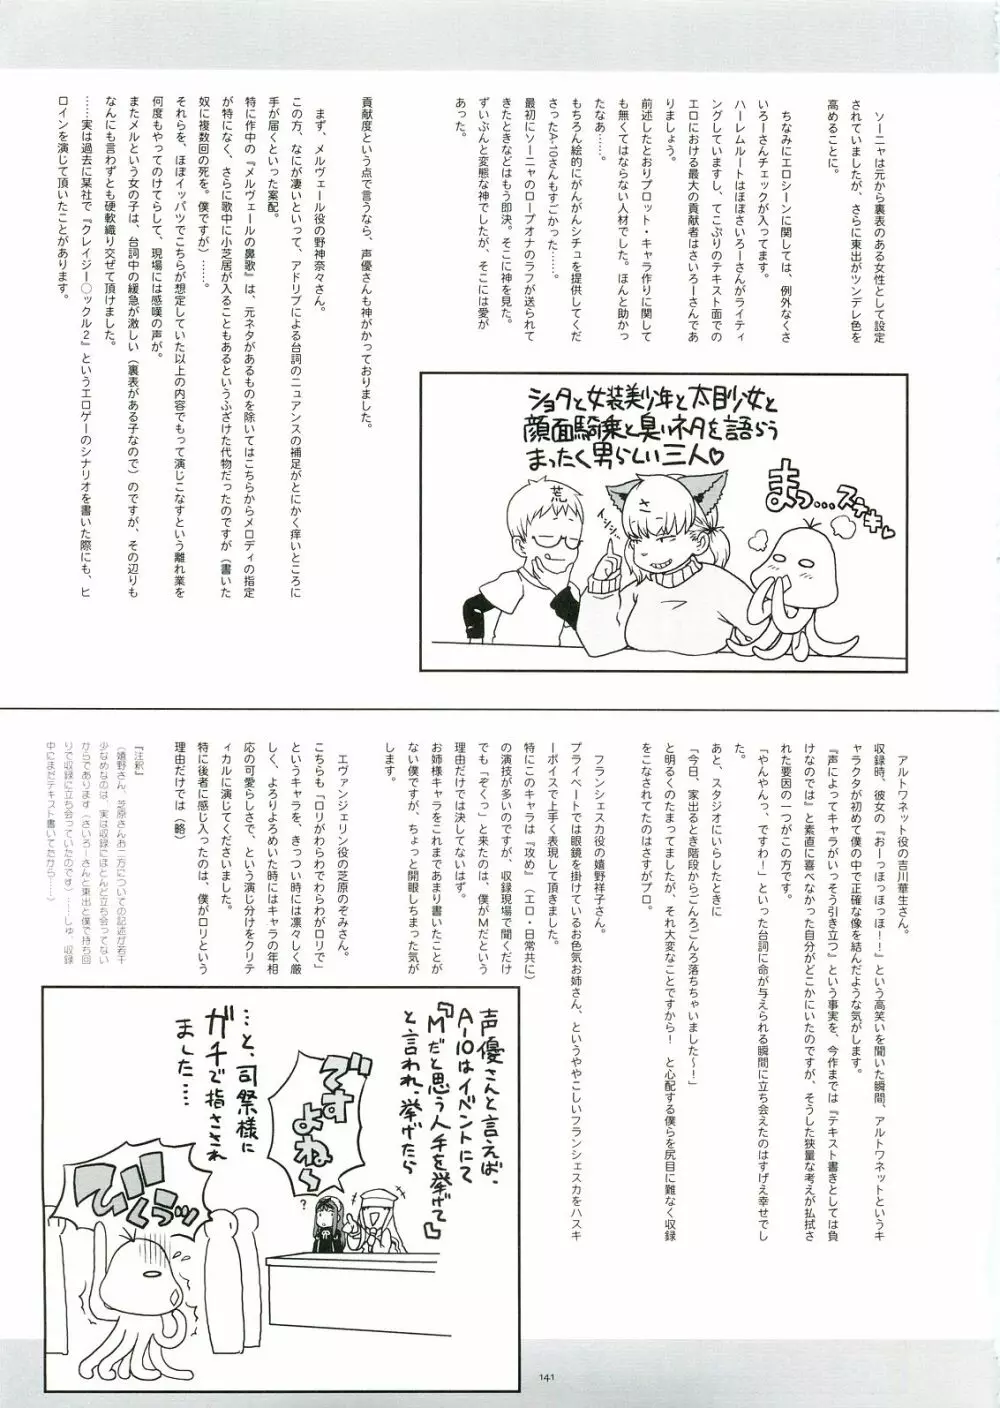 ソーニャは元から裏表のある女性として設定
されていましたが、さらに東出がツンデレ色を
高めることに。
ちなみにエロシーンに関しては、例外なくさ
いろーさんチェックが入ってます。
ハーレムルートはほぼさいろーさんがライティ
ングしていますし、てこぷりのテキスト面での
エロにおける最大の貢献者はさいろーさんであ
りましょう。
前述したとおりプロット・キャラ作りに関して
も無くてはならない人材でした。ほんと助かっ
たなあ……。
もちろん絵的にがんがんシチュを提供してくだ
さったA-10さんもすごかった……。
最初にソーニャのロープオナのラフが送られて
きたときなどはもう即決。そこに神を見た。
ずいぶんと変態な神でしたが、そこには愛が
あった。
貢献度という点で言うなら、声優さんも神がかっておりました。
まず、メルヴェール役の野神奈々さん。
この方、なにが凄いといって、アドリブによる台詞のニュアンスの補足がとにかく痒いところに
手が届くといった案配。
特に作中の『メルヴェールの鼻歌』は、元ネタがあるものを除いてはこちらからメロディの指定
が特になく、さらに歌中に小芝居が入ることもあるというふざけた代物だったのですが（書いた
奴に複数回の死を。僕ですが）……。
それらを、ほぼイッパツでこちらが想定していた以上の内容でもって演じこなすという離れ業を
何度もやってのけてらして、現場には感嘆の声が。
またメルという女の子は、台詞中の緩急が激しい（裏表がある子なので）のですが、その辺りも
なんにも言わずとも硬軟織り交ぜて頂けました。
……実は過去に某社で『クレイジー◯ックル2』というエロゲーのシナリオを書いた際にも、ヒ
ロインを演じて頂いたことがあります。
ショタと女装美少年と太目少女と
顔面騎乗と臭いネタを語らう
まったく男らしい三人♡
まっ…ステキ♡
荒
さ
アルトワネット役の吉川華生さん。
収録時、彼女の『おーっほっほっほ！！』という高笑いを聞いた瞬間、アルトワネットというキ
ャラクタが初めて僕の中で正確な像を結んだような気がします。
『声によってキャラがいっそう引き立つ』という事実を、今作までは『テキスト書きとしては負
けなのでは』と素直に喜べなかった自分がどこかにいたのですが、そうした狭量な考えが払拭さ
れた要因の一つがこの方です。
「やんやんっ、ですわ！」といった台詞に命が与えられる瞬間に立ち会えたのはすげえ幸せでし
た。
あと、スタジオにいらしたときに
「今日、家出るとき階段からごんごろごんごろ落ちちゃいました～！」
と明るくのたまってましたが、それ大変なことですから！　と心配する僕らを尻目に難なく収録
をこなされてたのはさすがプロ。
フランシェスカ役の嬉野祥子さん。
プライベートでは眼鏡を掛けているお色気お姉さん、というややこしいフランシェスカをハスキ
ーボイスで上手く表現して頂きました。
特にこのキャラは『攻め』（エロ・日常共に）
の演技が多いのですが、収録現場で聞くだけ
でも「ぞくっ」と来たのは、僕がMだという
理由だけでは決してないはず。
お姉様キャラをこれまであまり書いたことが
ない僕ですが、ちょっと開眼しちまった気が
します。
エヴァンジェリン役の芝原のぞみさん。
こちらも「ロリがわらわでわらわがロリで」
というキャラを、きっつい時には凛々しく厳
しく、よろりよろめいた時にはキャラの年相
応の可愛らしさで、という演じ分けをクリテ
ィカルに演じてくださいました。
特に後者に感じ入ったのは、僕がロリという
理由だけでは（略）
『注釈』
（嬉野さん、芝原さんお二方についての記述が若干
少なめなのは、実は収録にほとんど立ち会ってない
からであります（さいろーさんと東出と僕で持ち回
りで収録に立ち会っていたのです）……しゅ、収録
中にまだテキスト書いてたから……）
声優さんと言えば、
A-10はイベントにて
『Mだと思う人手を挙げて♡』
と言われ、挙げたら
…と、司祭様に
ガチで指さされ
ました…
ですよね～
？
びくぅッ
141